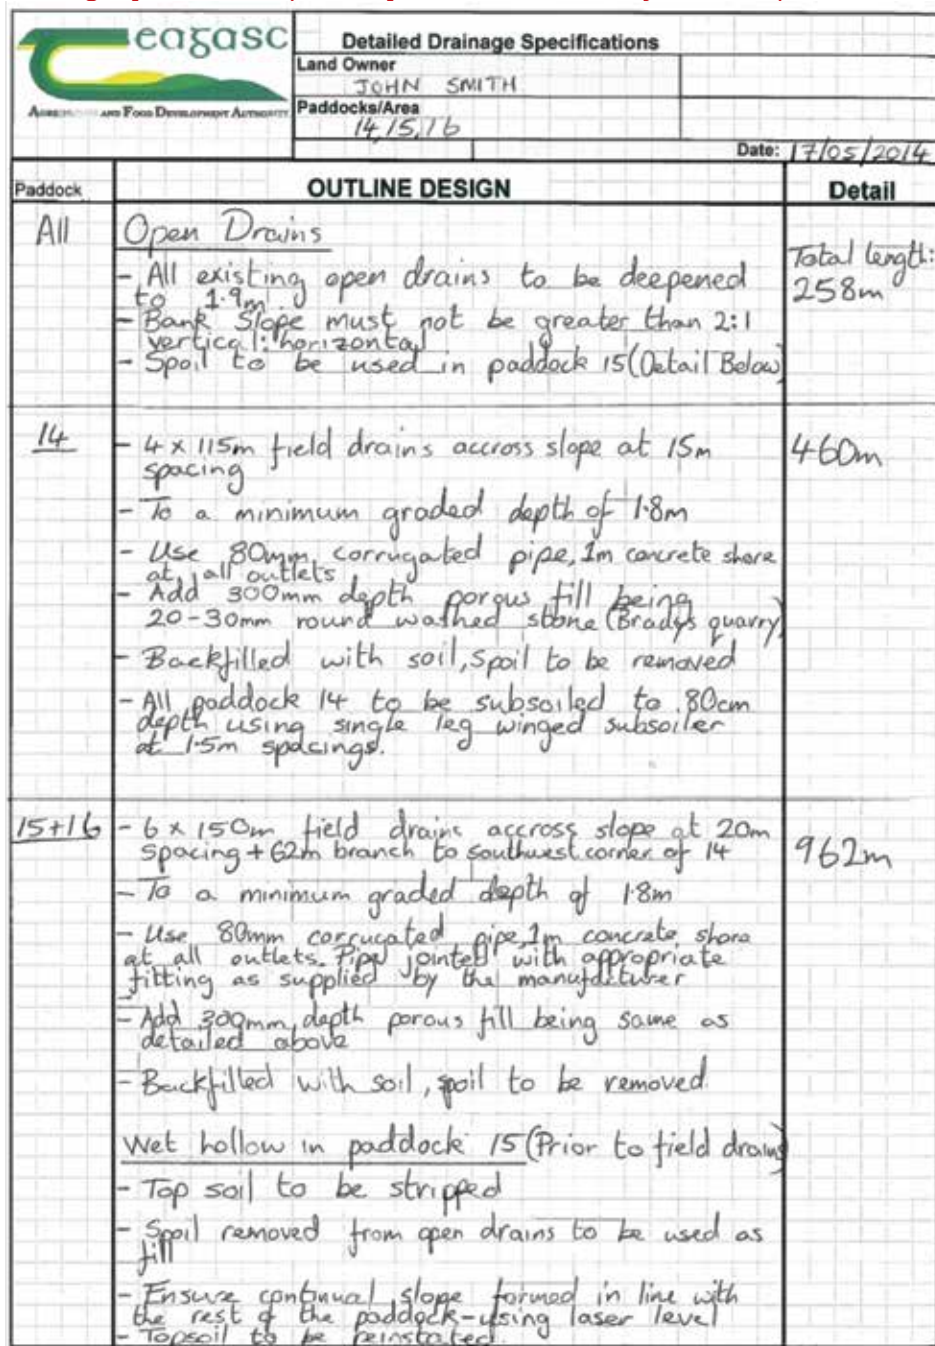 eagasc
AND FOOD DEVELOPMENT AUTHORITY
Detailed Drainage Specifications
Land Owner
JOHN SMITH
Paddocks/Area
14,15,16
Date: 17/05/2014
Paddock
OUTLINE DESIGN
Detail
All
Open Drains
- All existing open drains to be deepened
to 1.9m
- Bank Slope must not be greater than 2:1
vertical:horizontal
- Spoil to be used in paddock 15(Detail Below)
Total length:
258m
14
- 4 x 115m field drains accross slope at 15m
spacing
- To a minimum graded depth of 1.8m
- Use 80mm corrugated pipe, 1m concrete shore
at all outlets
- Add 300mm depth porous fill being
20-30mm round washed stone (Bradys quarry)
- Backfilled with soil, spoil to be removed
- All paddock 14 to be subsoiled to 80cm
depth using single leg winged subsoiler
at 1.5m spacings.
460m
15+16
- 6 x 150m field drains accross slope at 20m
spacing + 62m branch to southwest corner of 14
- To a minimum graded depth of 1.8m
- Use 80mm corrugated pipe, 1m concrete shore
at all outlets. Pipe jointed with appropriate
fitting as supplied by the manufacturer
- Add 300mm depth porous fill being same as
detailed above
- Backfilled with soil, spoil to be removed
962m
Wet hollow in paddock 15 (Prior to field drains)
- Top soil to be stripped
- Spoil removed from open drains to be used as
fill
- Ensure continual slope formed in line with
the rest of the paddock-using laser level
- Topsoil to be reinstated.